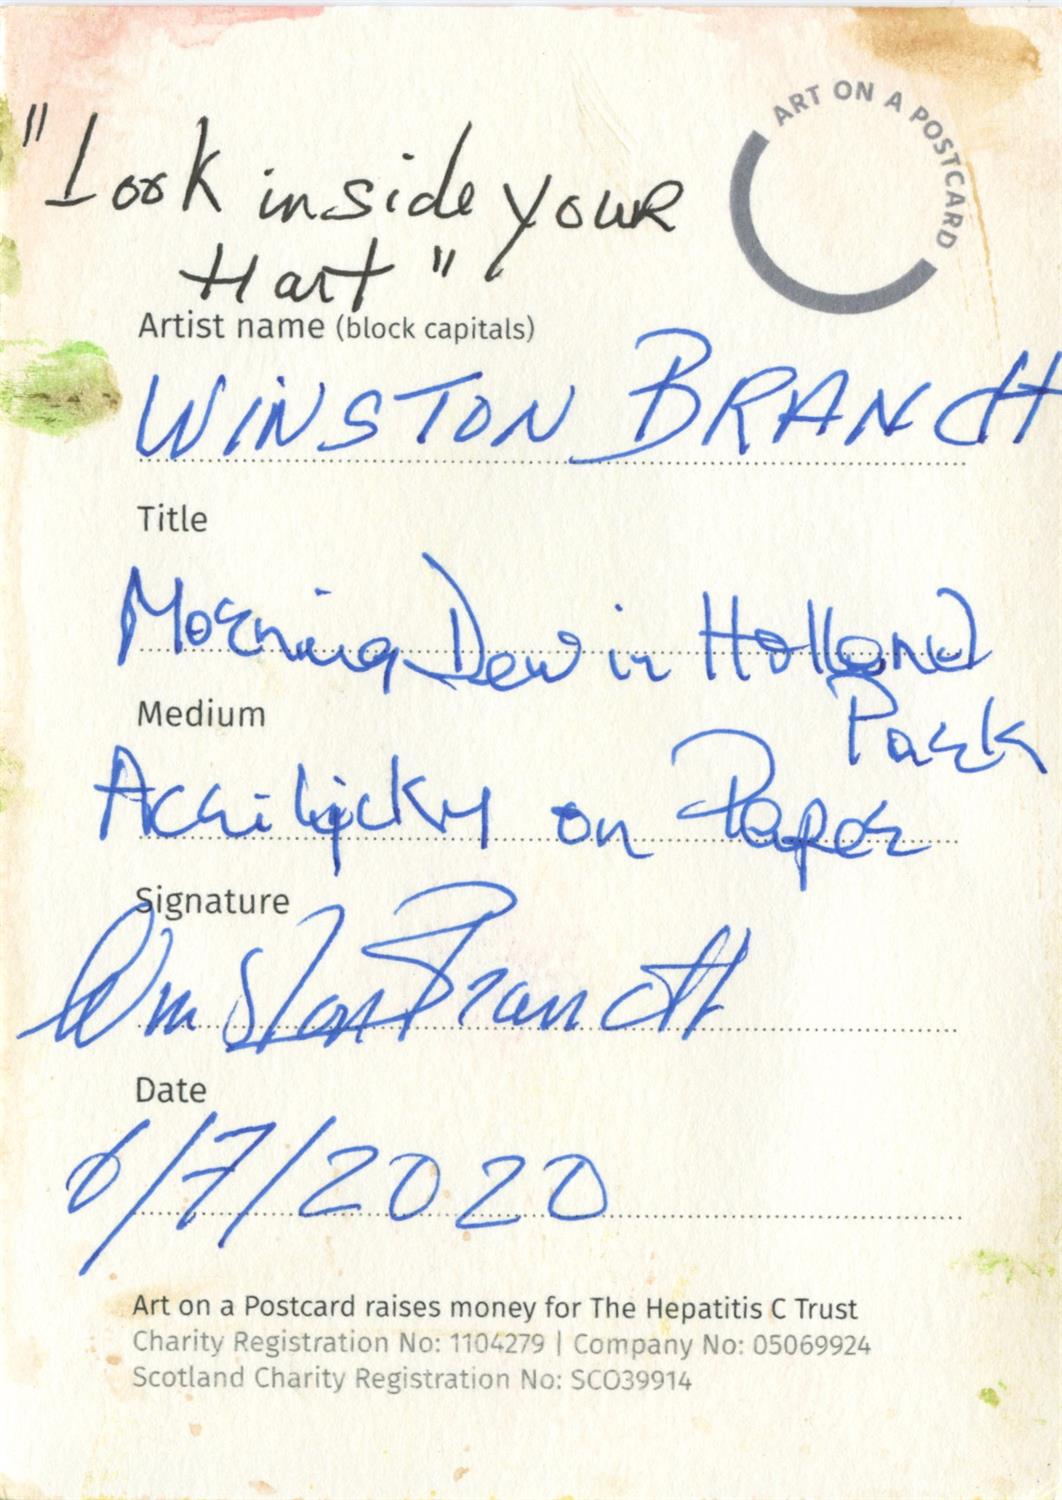 ART ON A POSTCARD
"Look inside your
Hart"
Artist name (block capitals)
WINSTON BRANCH
Title
Morning Dew in Holland
Park
Medium
on Paper
Signature
Winston Branch
Date
6/7/2020
Art on a Postcard raises money for The Hepatitis C Trust
Charity Registration No: 1104279 | Company No: 05069924
Scotland Charity Registration No: SCO39914